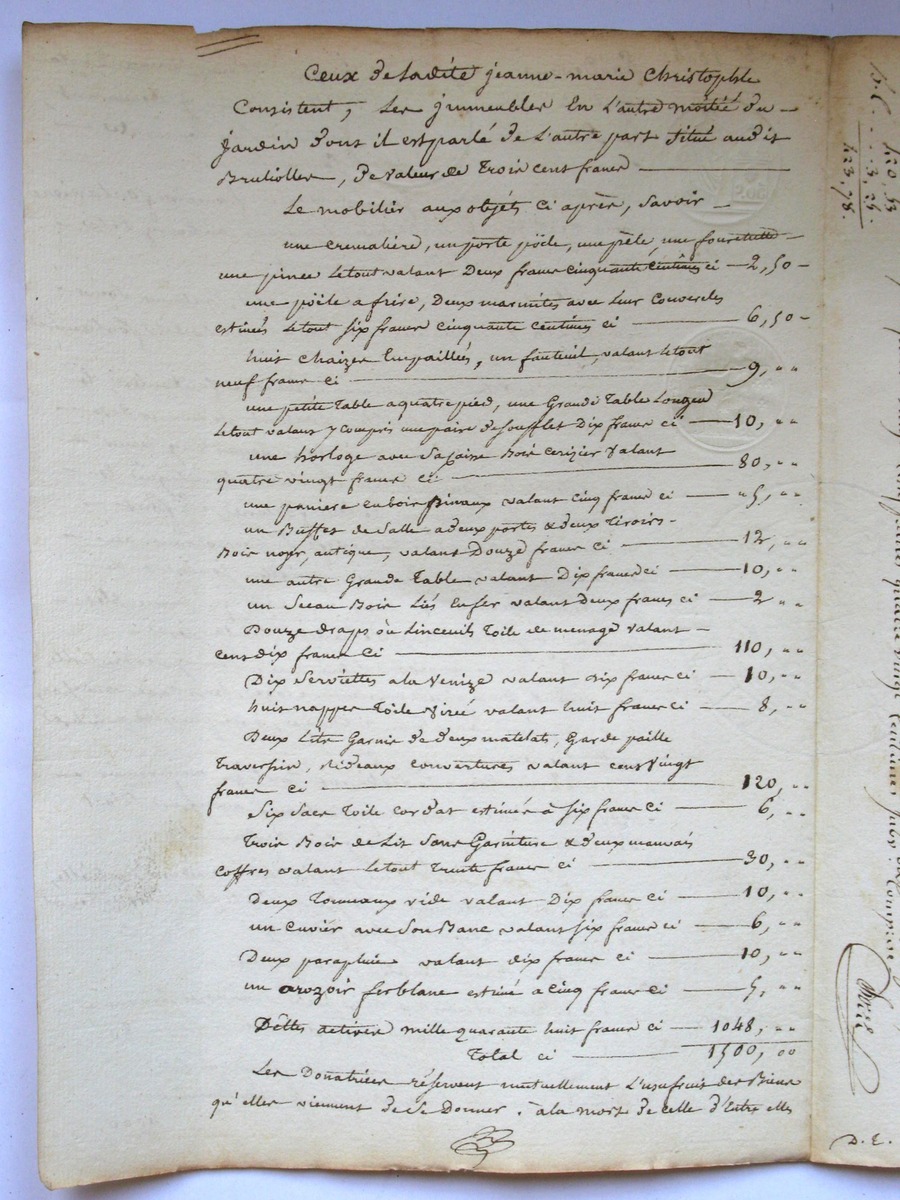 Ceux de ladite jeanne-marie Christophle
Consistent, Les jmmeubles En L'autre moitié du
jardin dont il est parlé de L'autre part Situé audit
Bruliolles, De valeur de Trois cent francs
Le mobilier aux objets ci après, Savoir
une cremaliere, un porte pöele, une pèle, une fourchette
une pince Le tout valant Deux francs cinquante centimes ci 2,50
une pöele a frire, Deux marmites avec Leur Couvercles
estimés Le tout six francs cinquante centimes ci 6,50
huit chaizes Empaillées, un fauteuil, valant Le tout
neuf francs ci 9, "
une petite Table a quatre pied, une Grande Table Longue
Le tout valant y compris une paire de soufflet Dix francs ci 10, "
une horloge avec Sa Caisse Bois cerizier valant
quatre vingt francs ci 80, "
une paniere en bois valant cinq francs ci 5, "
un Buffet de Salle a deux portes & deux Tiroirs
Bois noyer, antique, valant Douze francs ci 12, "
une autre Grande Table valant Dix francs ci 10, "
un Seau Bois Liés En fer valant deux francs ci 2 "
Douze draps ou Linceuils Toile de menage valant
cent dix francs ci 110, "
Dix Serviettes a la Venize valant dix francs ci 10, "
huit nappes Toile valant huit francs ci 8, "
Deux Lits Garnis de deux matelats, Garde paille
Traversin, Rideaux couvertures valant cent Vingt
francs ci 120, "
Six Sacs Toile cordat estimés à six francs ci 6, "
Trois Bois de Lit Sans Garniture & deux mauvais
coffres valant Le tout Trente francs ci 30, "
Deux Tonneaux vide valant Dix francs ci 10, "
un cuvier avec Son Banc valant six francs ci 6, "
Deux parapluie valant dix francs ci 10, "
un arozoir ferblanc estimé a cinq francs ci 5, "
Dêttes actives mille quarante huit francs ci 1048, "
Total ci 1500, 00
Les Donatrices réservent mutuellement L'usufruit des Biens
qu'elles viennent de Se Donner. à la mort de celle d'Entre elles
420, 53
3, 25
423, 78.
D. E.